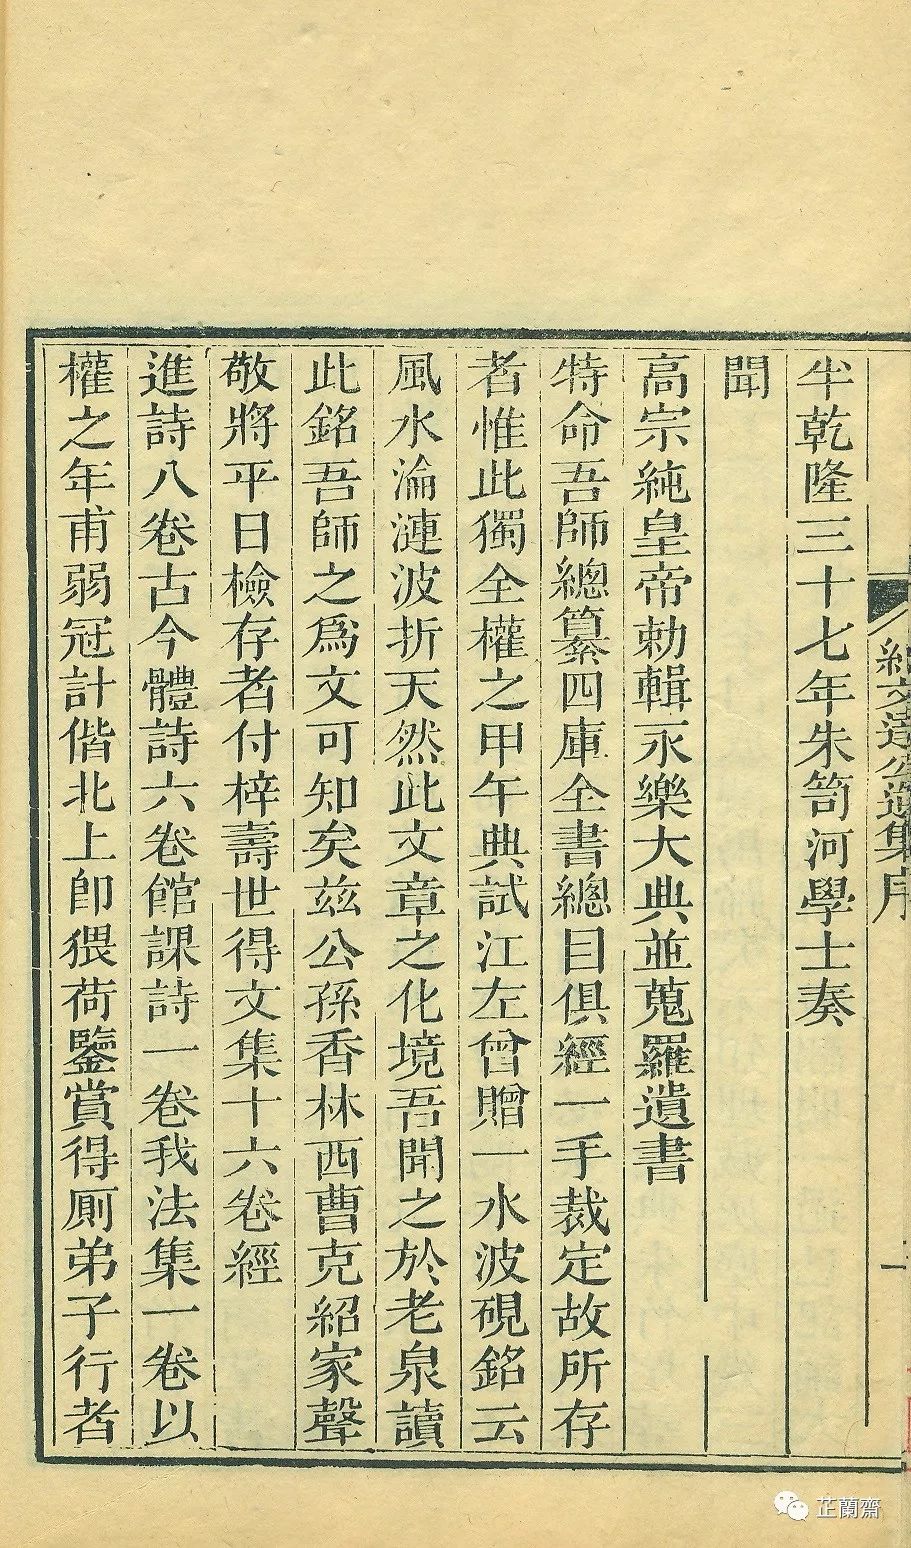 紀文達公遺集序
二
半乾隆三十七年朱笥河學士奏
聞
高宗純皇帝勅輯永樂大典並蒐羅遺書
特命吾師總纂四庫全書總目俱經一手裁定故所存
者惟此獨全權之甲午典試江左曾贈一水波硯銘云
風水淪漣波折天然此文章之化境吾聞之於老泉讀
此銘吾師之為文可知矣茲公孫香林西曹克紹家聲
敬將平日檢存者付梓壽世得文集十六卷經
進詩八卷古今體詩六卷館課詩一卷我法集一卷以
權之年甫弱冠計偕北上卽猥荷鑒賞得厠弟子行者
芷蘭齋